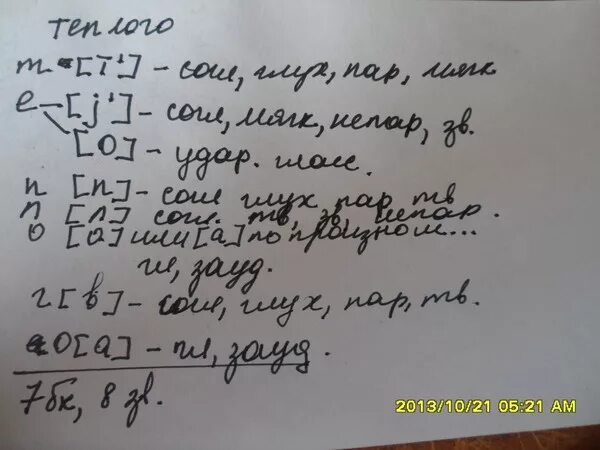 теплого
т [т'] - согл, глух, пар, мягк
е - [j'] - согл, мягк, непар, зв.
[о] - удар. гласс.
п [п] - согл глух пар тв
л [л] согл. тв, зв, непар.
о [а] или [а] по произном...
гл, зауд.
г [в] - согл, глух, пар, тв.
о [а] - гл, зауд.
7 бк, 8 зв.
2013/10/21 05:21 AM